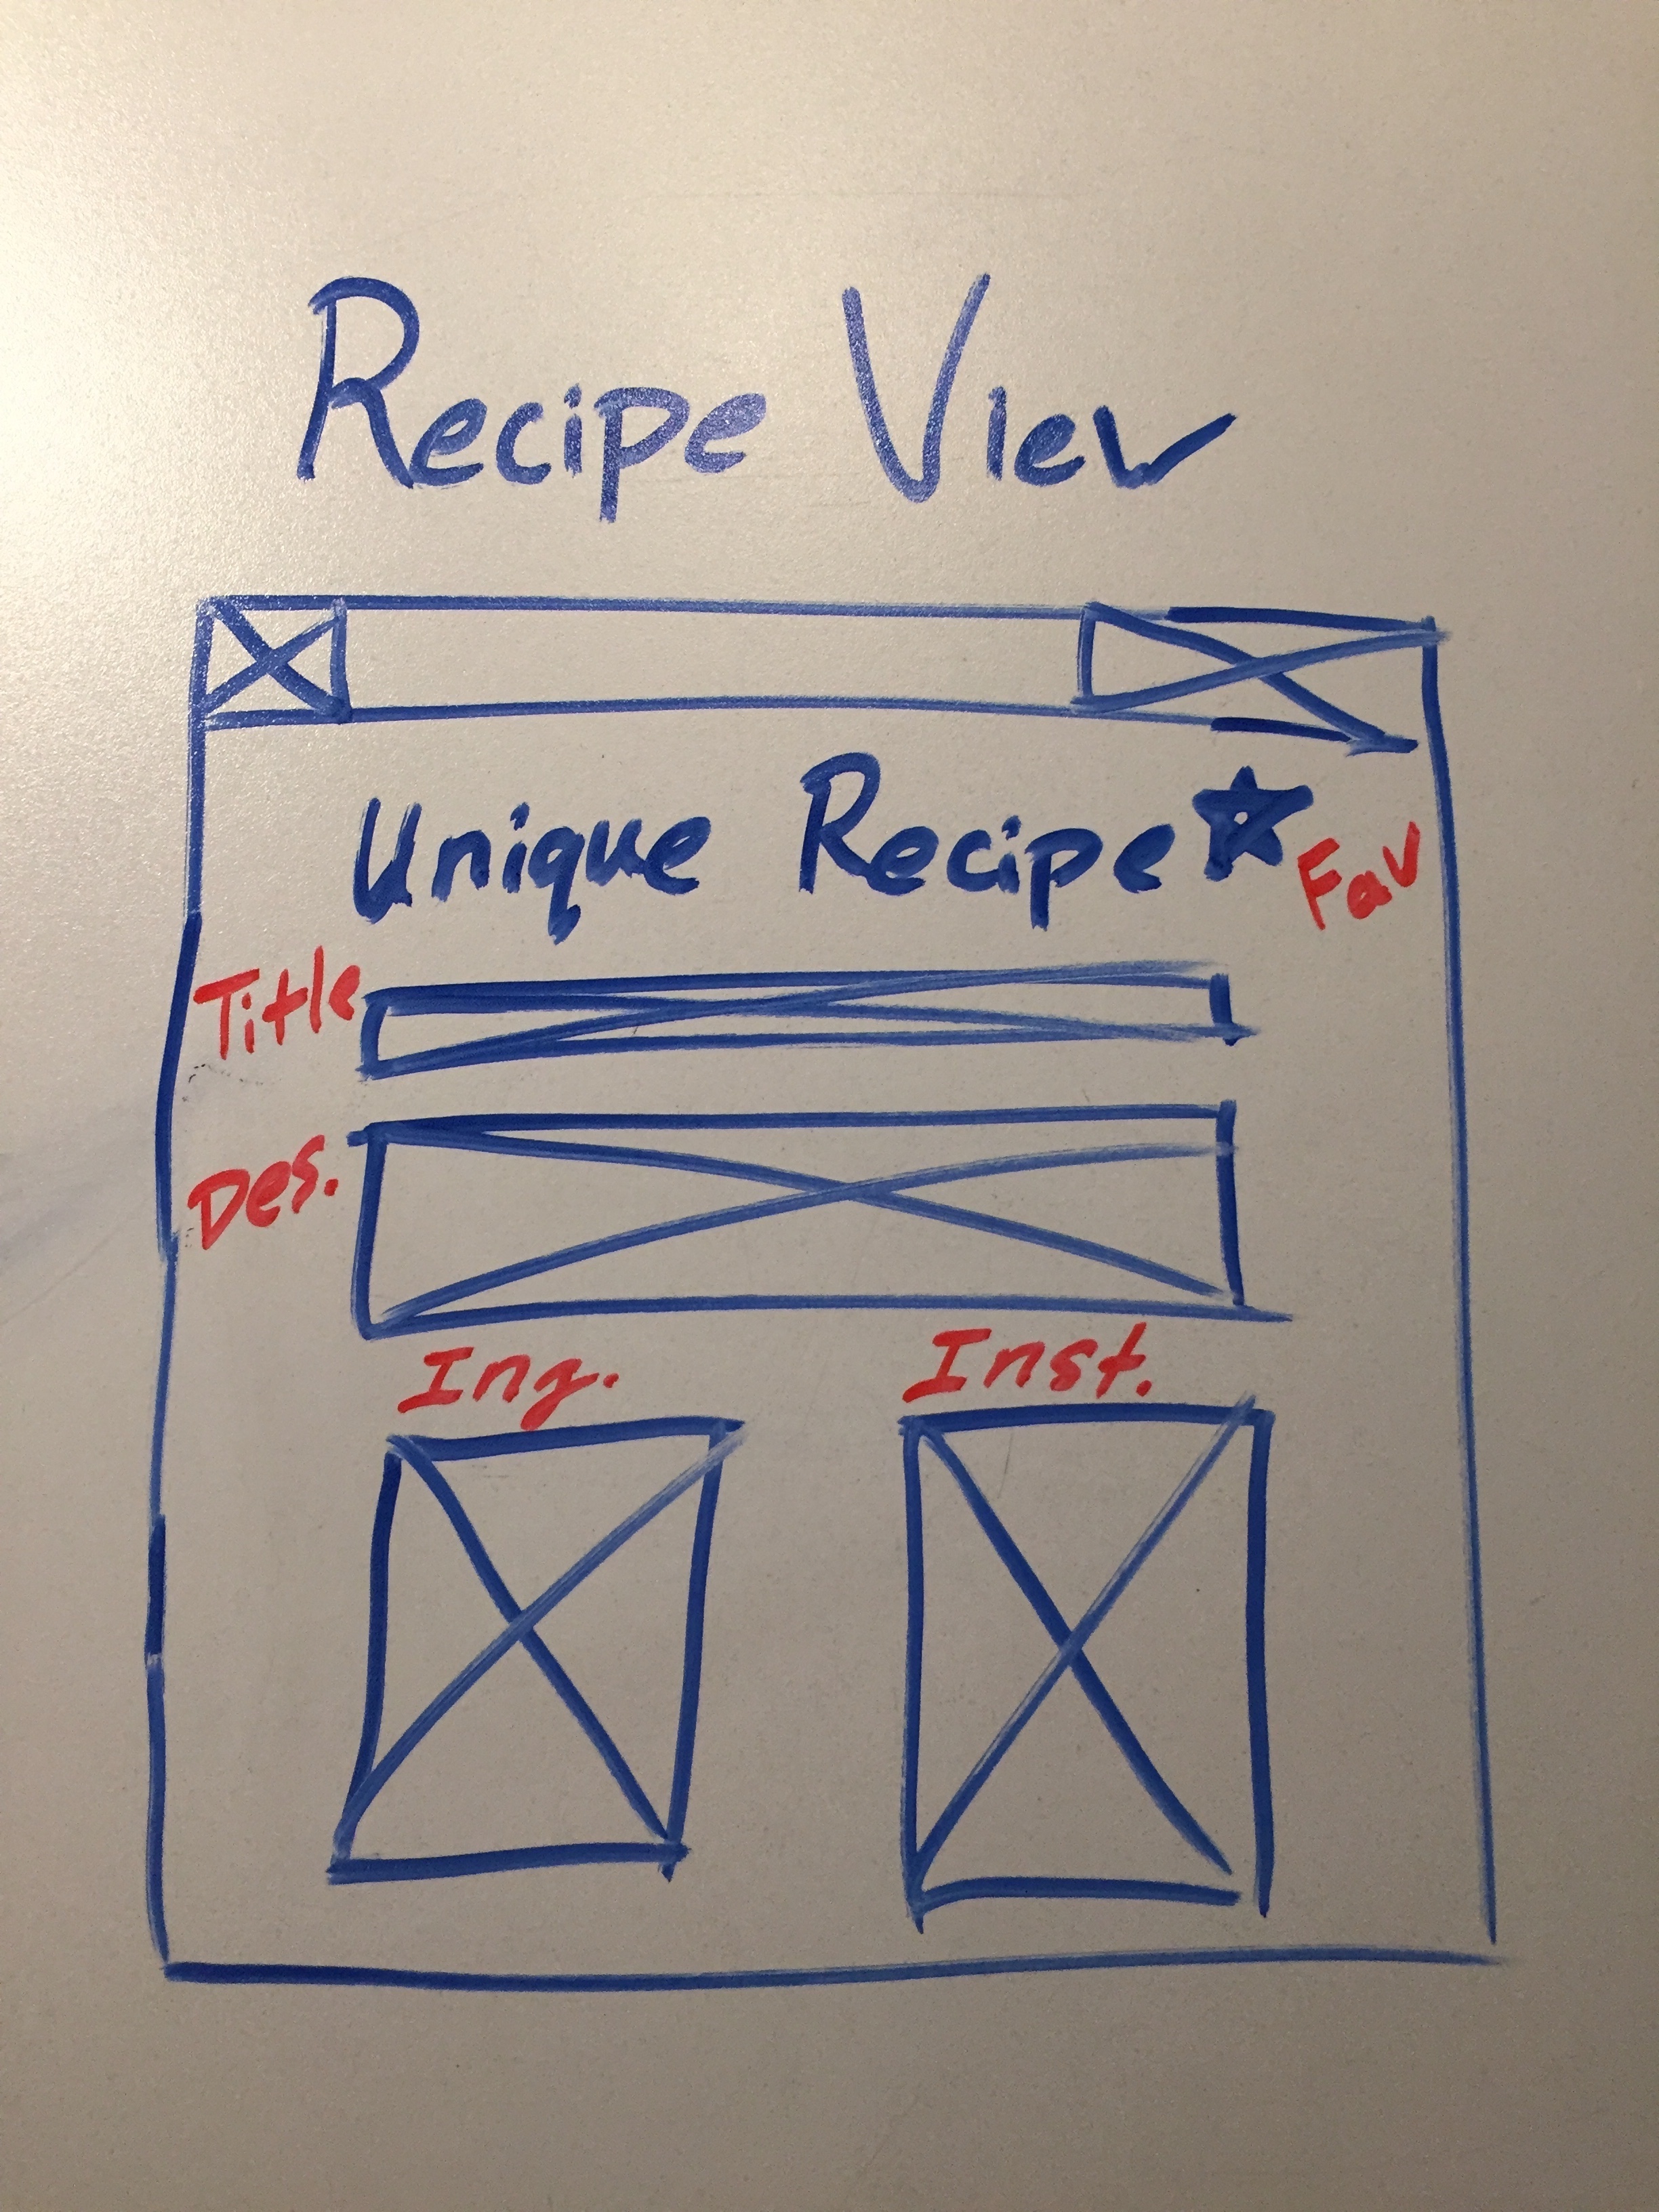 Recipe View
Unique Recipe
Fav
Title
Des.
Ing.
Inst.